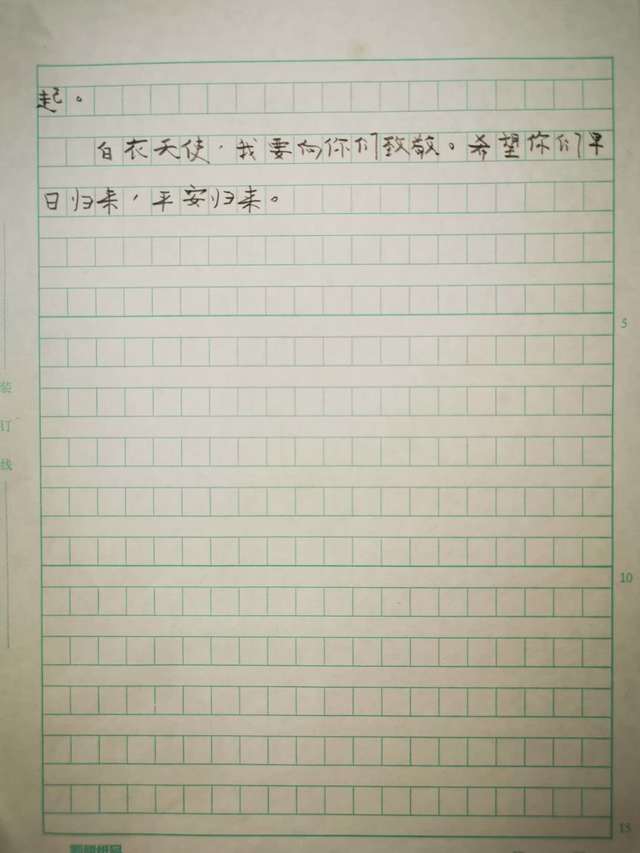 起。
白衣天使，我要向你们致敬。希望你们早
日归来，平安归来。
5
装
订
线
10
15